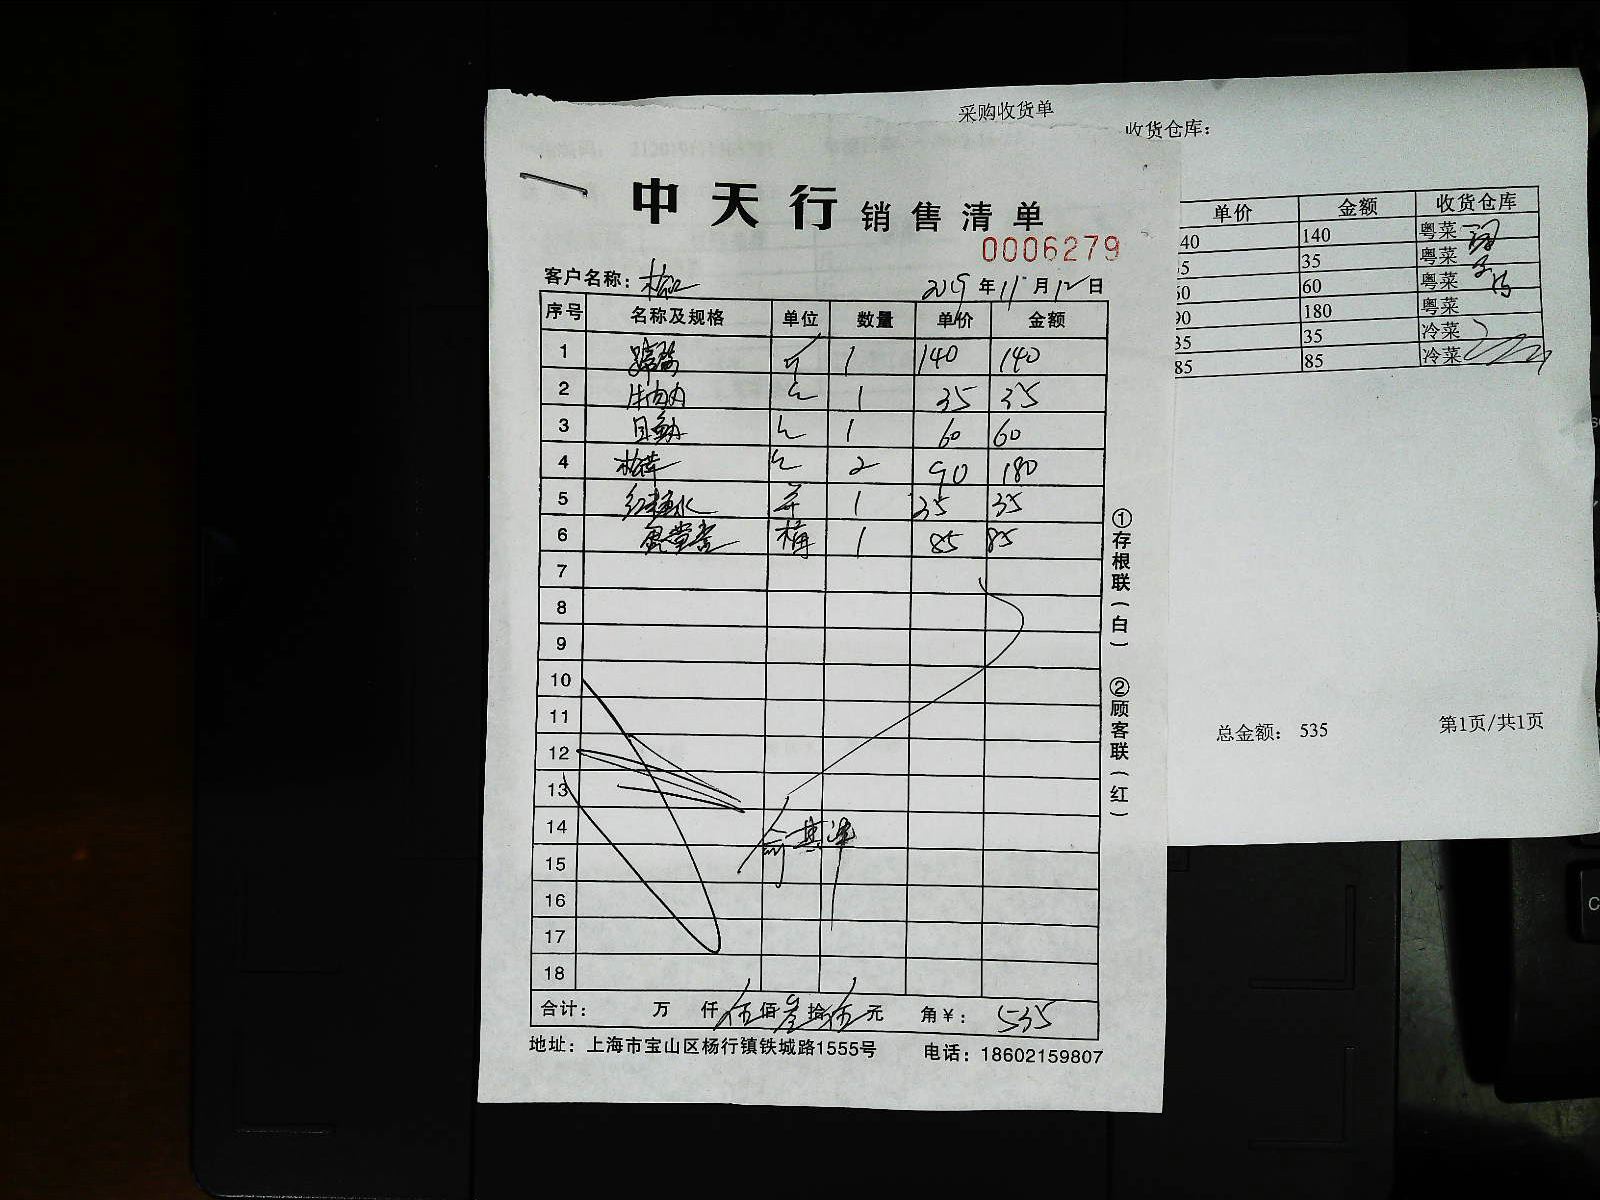 采购收货单
收货仓库：
中天行 销售清单
0006279
客户名称：
2019年11月12日
序号 名称及规格 单位 数量 单价 金额
1 1 140 140
2 牛肉丸 1 35 35
3 1 60 60
4 2 90 180
5 1 35 35
6 1 85 85
7
8
9
10
11
12
13
14
15
16
17
18
合计： 万 仟伍佰叁拾伍元 角￥： 535
地址：上海市宝山区杨行镇铁城路1555号 电话：18602159807
①存根联（白） ②顾客联（红）
单价 金额 收货仓库
40 140 粤菜
5 35 粤菜
60 60 粤菜
90 180 粤菜
35 35 冷菜
85 85 冷菜
总金额： 535 第1页/共1页